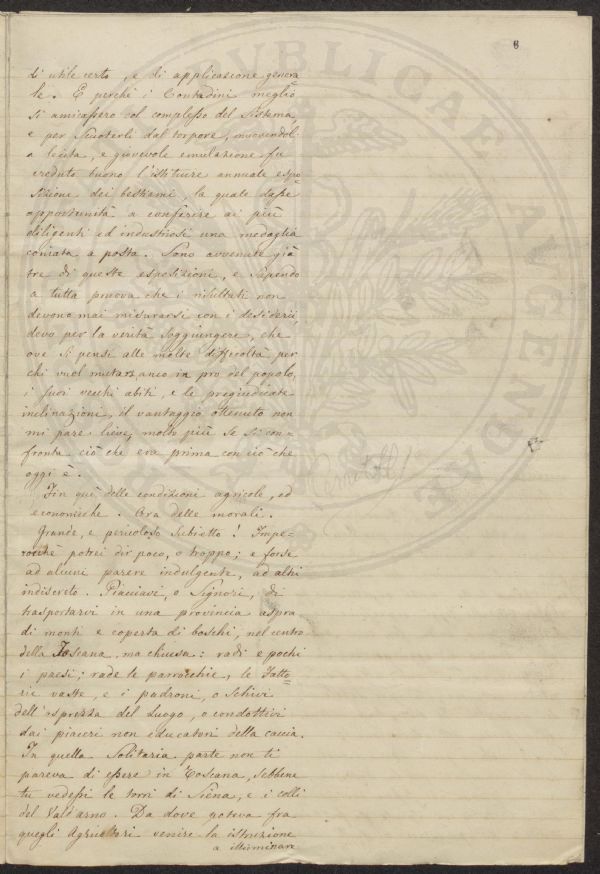 6
di utile certo, e di applicazione genera
le. E perchè i Contadini meglio
si amicassero col complesso del Sistema,
e per scuoterli dal torpore, muovendoli
a lecita, e giovevole emulazione fu
creduto buono l'istituire annuale espo
sizione dei bestiami, la quale dasse
opportunità a conferire ai più
diligenti ed industriosi una medaglia
coniata a posta. Sono avvenute già
tre di queste esposizioni, e sapendo
a tutta pruova che i risultati non
devono mai misurarsi con i desiderii
devo per la verità soggiungere, che
ove si pensi alle molte difficoltà per
chi vuol mutare, anco in pro del popolo,
i suoi vecchi abiti, e le pregiudicate
inclinazioni, il vantaggio ottenuto non
mi pare lieve, molto più se si con-
fronta ciò che era prima con ciò che
oggi è.
Fin quì delle condizioni agricole, ed
economiche. Ora delle morali.
Grande, e pericoloso subietto! Impe-
rocchè potrei dir poco, o troppo; e forse
ad alcuni parere indulgente, ad altri
indiscreto. Piacciavi, o Signori, di
trasportarvi in una provincia aspra
di monti e coperta di boschi, nel centro
della Toscana, ma chiusa: radi e pochi
i paesi; rade le parrocchie, le Fatto
rie vaste, e i padroni, o schivi
dell'asprezza del Luogo, o condottivi
dai piaceri non educatori della caccia.
In quella Solitaria parte non ti
pareva di essere in Toscana, sebbene
tu vedessi le torri di Siena, e i colli
del Vald'arno. Da dove poteva fra
quegli Agricoltori venire la istruzione
a illuminare